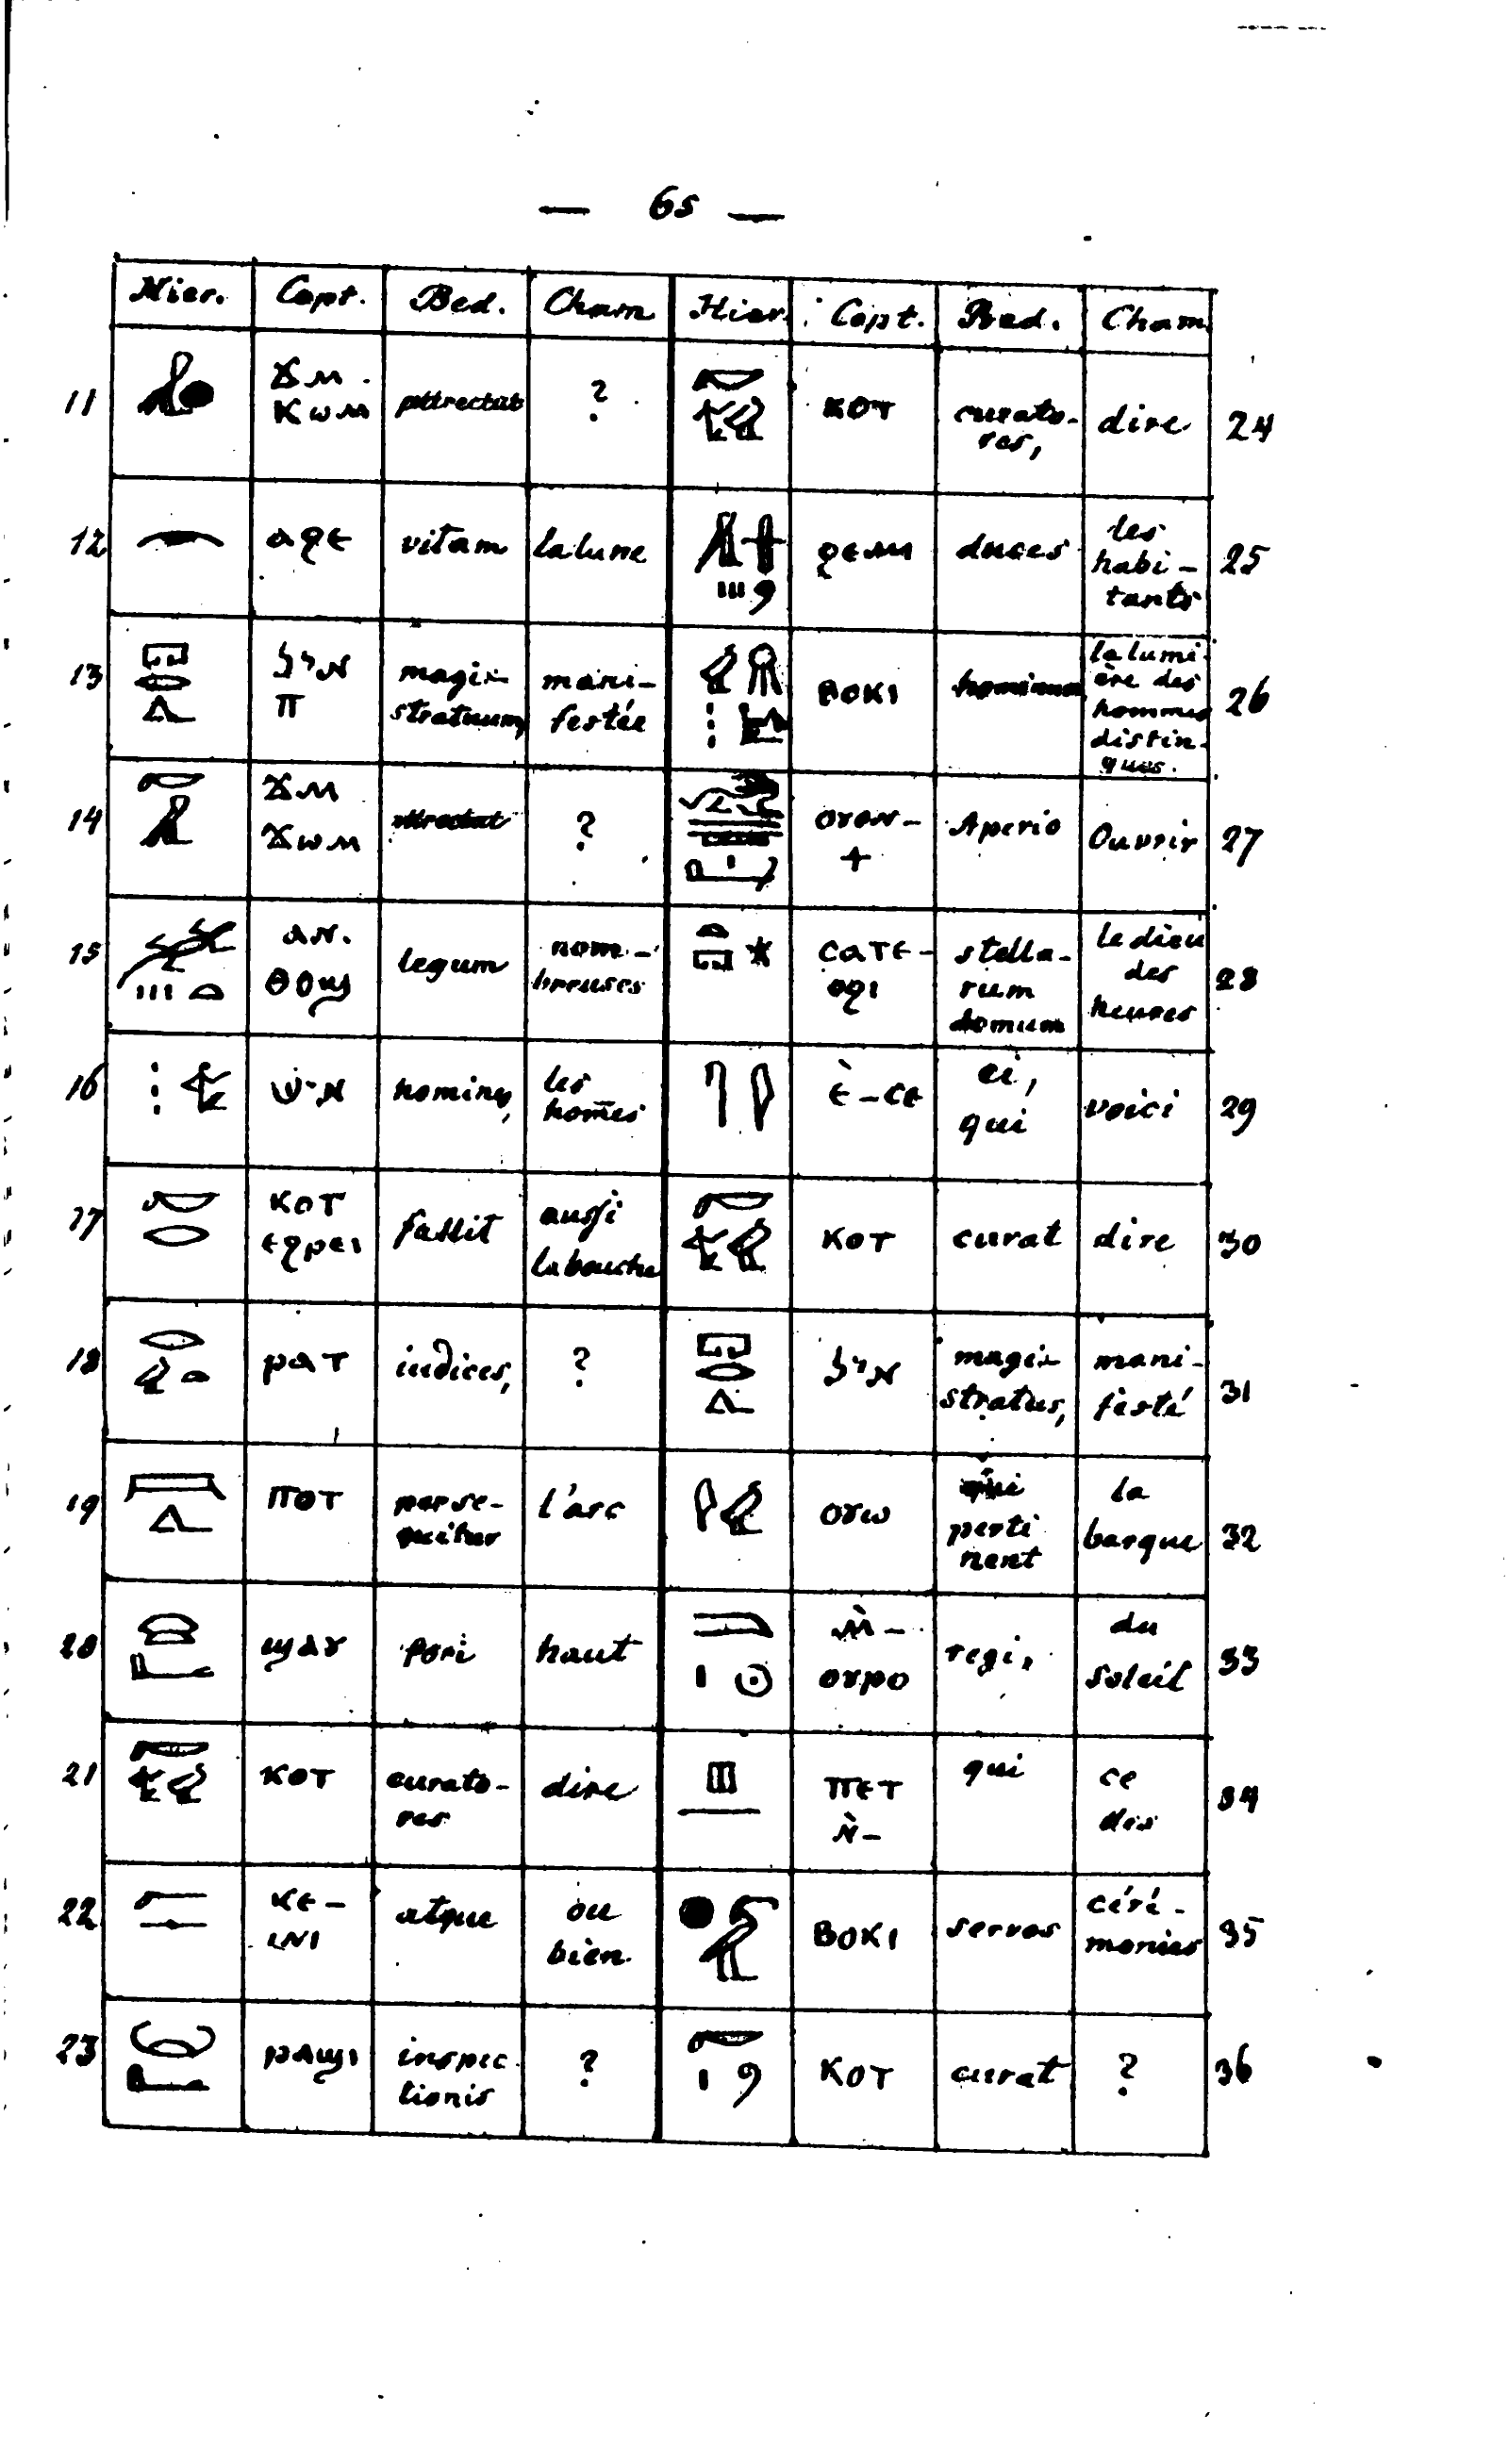 — 65 —
Hier. Copt. Bed. Cham Hier. Copt. Bed. Cham
11 ϪⲘ. ⲔⲰⲘ attrectat ?
ⲔⲞⲦ curato-res, dire 24
12 ⲀϨⲈ vitam la lune
ϨⲈⲘ duces les habi-tants 25
13 אײל Ⲡ magi-stratuum, mani-festée
ⲂⲞⲔⲒ hominum la lumi-ère des hommes distin-gués. 26
14 ϪⲘ ϪⲰⲘ attrectat ?
ⲞⲨⲰⲚ- ϯ Aperio Ouvrir 27
15 ⲀⲚ. ⲐⲞϢ legum nom-breuses
ⲤⲀⲦⲈ- ⲞϨⲒ stella-rum domum le dieu des heures 28
16 איש homines, les hom̄es
Ⲉ̀-ⲤⲈ ei, qui voici 29
17 ⲔⲞⲦ ⲈϨⲢⲈⲒ fallit aussi la bouche
ⲔⲞⲦ curat dire 30
18 ⲢⲀⲦ indices, ?
איל magi-stratus, mani-festé 31
19 ⲠⲞⲦ perse-quitur l'arc
ⲞⲨⲰ qui perti nent la barque 32
20 ϢⲀⲨ fori haut
Ⲙ̀- ⲞⲨⲢⲞ regi, du soleil 33
21 ⲔⲞⲦ curato-res dire
ⲠⲈⲦ Ⲛ̀- qui ce des 34
22 ⲔⲈ- ⲒⲚⲒ atque ou bien.
ⲂⲞⲔⲒ servos céré-monies 35
23 ⲢⲀϢⲒ inspec tionis ?
ⲔⲞⲦ curat ? 36